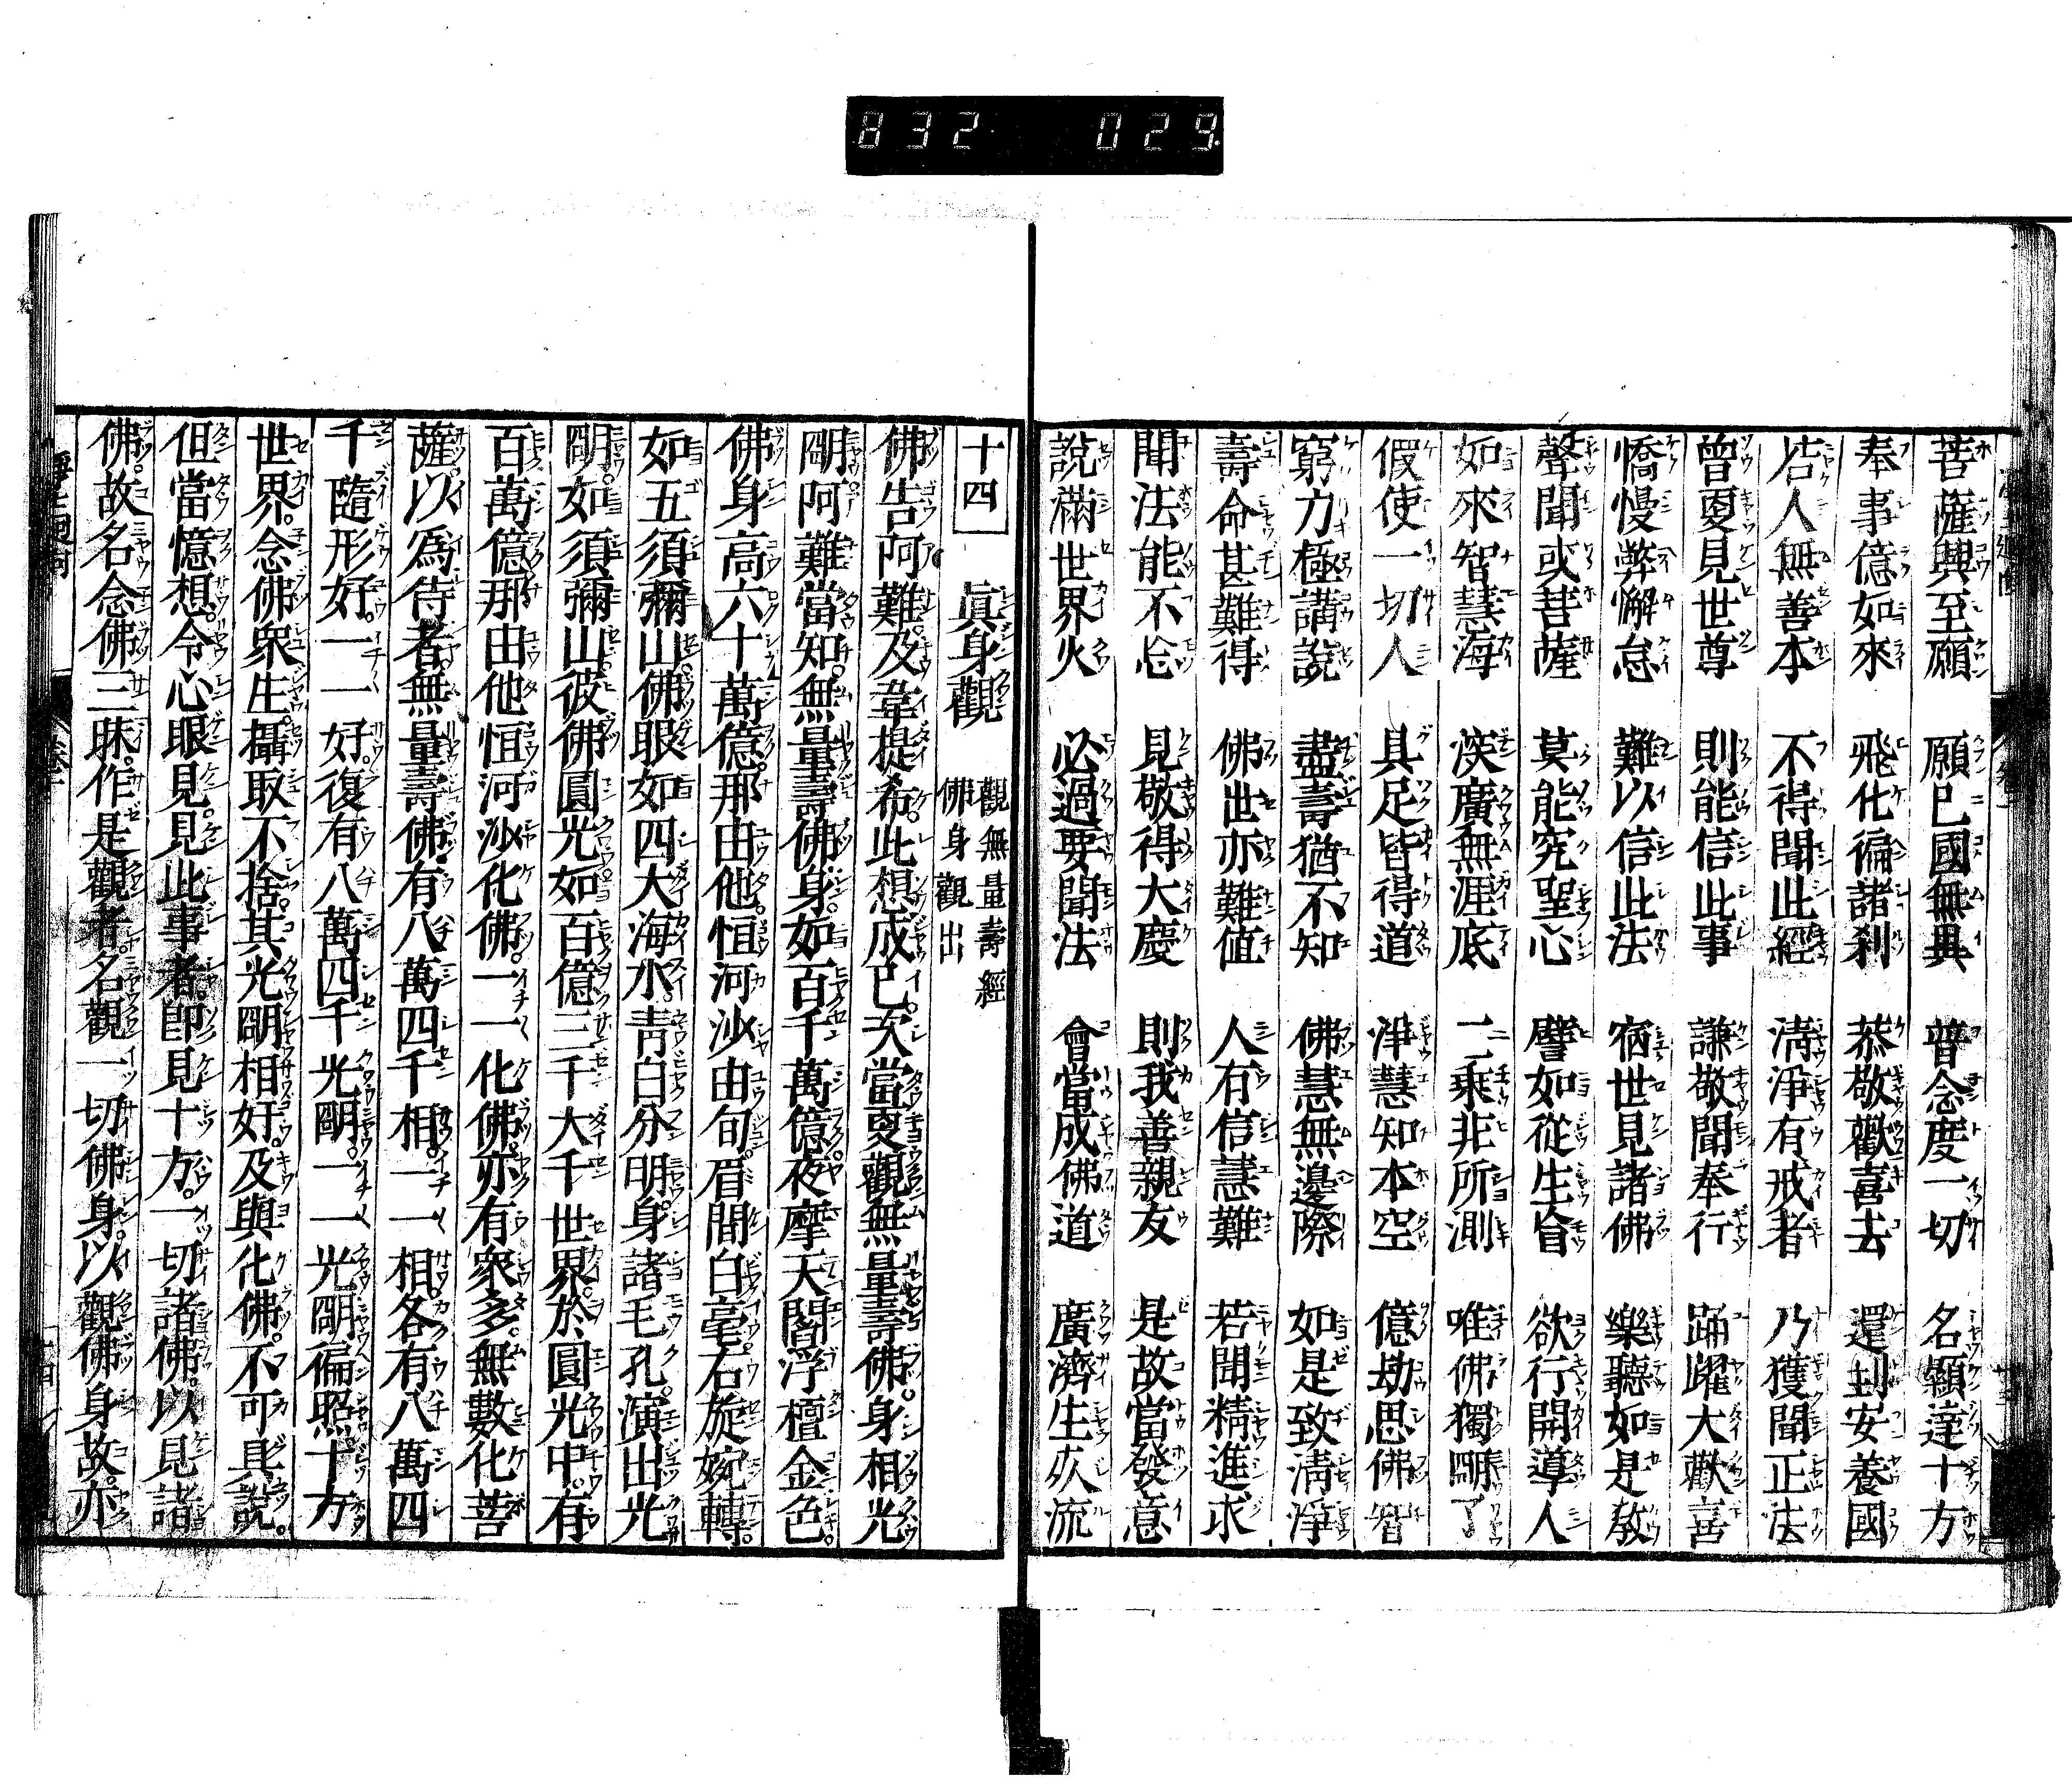 832 029
菩薩興至願 願己國無異 普念度一切 名顯達十方
奉事億如來 飛化徧諸刹 恭敬歡喜去 還到安養國
若人無善本 不得聞此經 淸淨有戒者 乃獲聞正法
曾更見世尊 則能信此事 謙敬聞奉行 踊躍大歡喜
憍慢弊懈怠 難以信此法 宿世見諸佛 樂聽如是敎
聲聞或菩薩 莫能究聖心 譬如從生盲 欲行開導人
如來智慧海 深廣無涯底 二乘非所測 唯佛獨明了
假使一切人 具足皆得道 淨慧知本空 億劫思佛智
窮力極講說 盡壽猶不知 佛慧無邊際 如是致淸淨
壽命甚難得 佛世亦難值 人有信慧難 若聞精進求
聞法能不忘 見敬得大慶 則我善親友 是故當發意
設滿世界火 必過要聞法 會當成佛道 廣濟生死流
十四 眞身觀 觀無量壽經佛身觀出
佛告阿難。及韋提希。此想成已。次當更觀無量壽佛。身相光
明。阿難當知。無量壽佛身。如百千萬億。夜摩天閻浮檀金色。
佛身高六十萬億。那由他。恒河沙由旬。眉間白毫。右旋婉轉。
如五須彌山。佛眼如四大海水。靑白分明。身諸毛孔。演出光
明。如須彌山。彼佛圓光。如百億三千大千世界。於圓光中。有
百萬億那由他恒河沙化佛。一一化佛。亦有衆多。無數化菩
薩。以爲侍者。無量壽佛。有八萬四千相。一一相。各有八萬四
千隨形好。一一好。復有八萬四千光明。一一光明。徧照十方
世界。念佛衆生。攝取不捨。其光明相好。及與化佛。不可具說。
但當憶想。令心眼見。見此事者。卽見十方。一切諸佛。以見諸
佛。故名念佛三昧。作是觀者。名觀一切佛身。以觀佛身故。亦